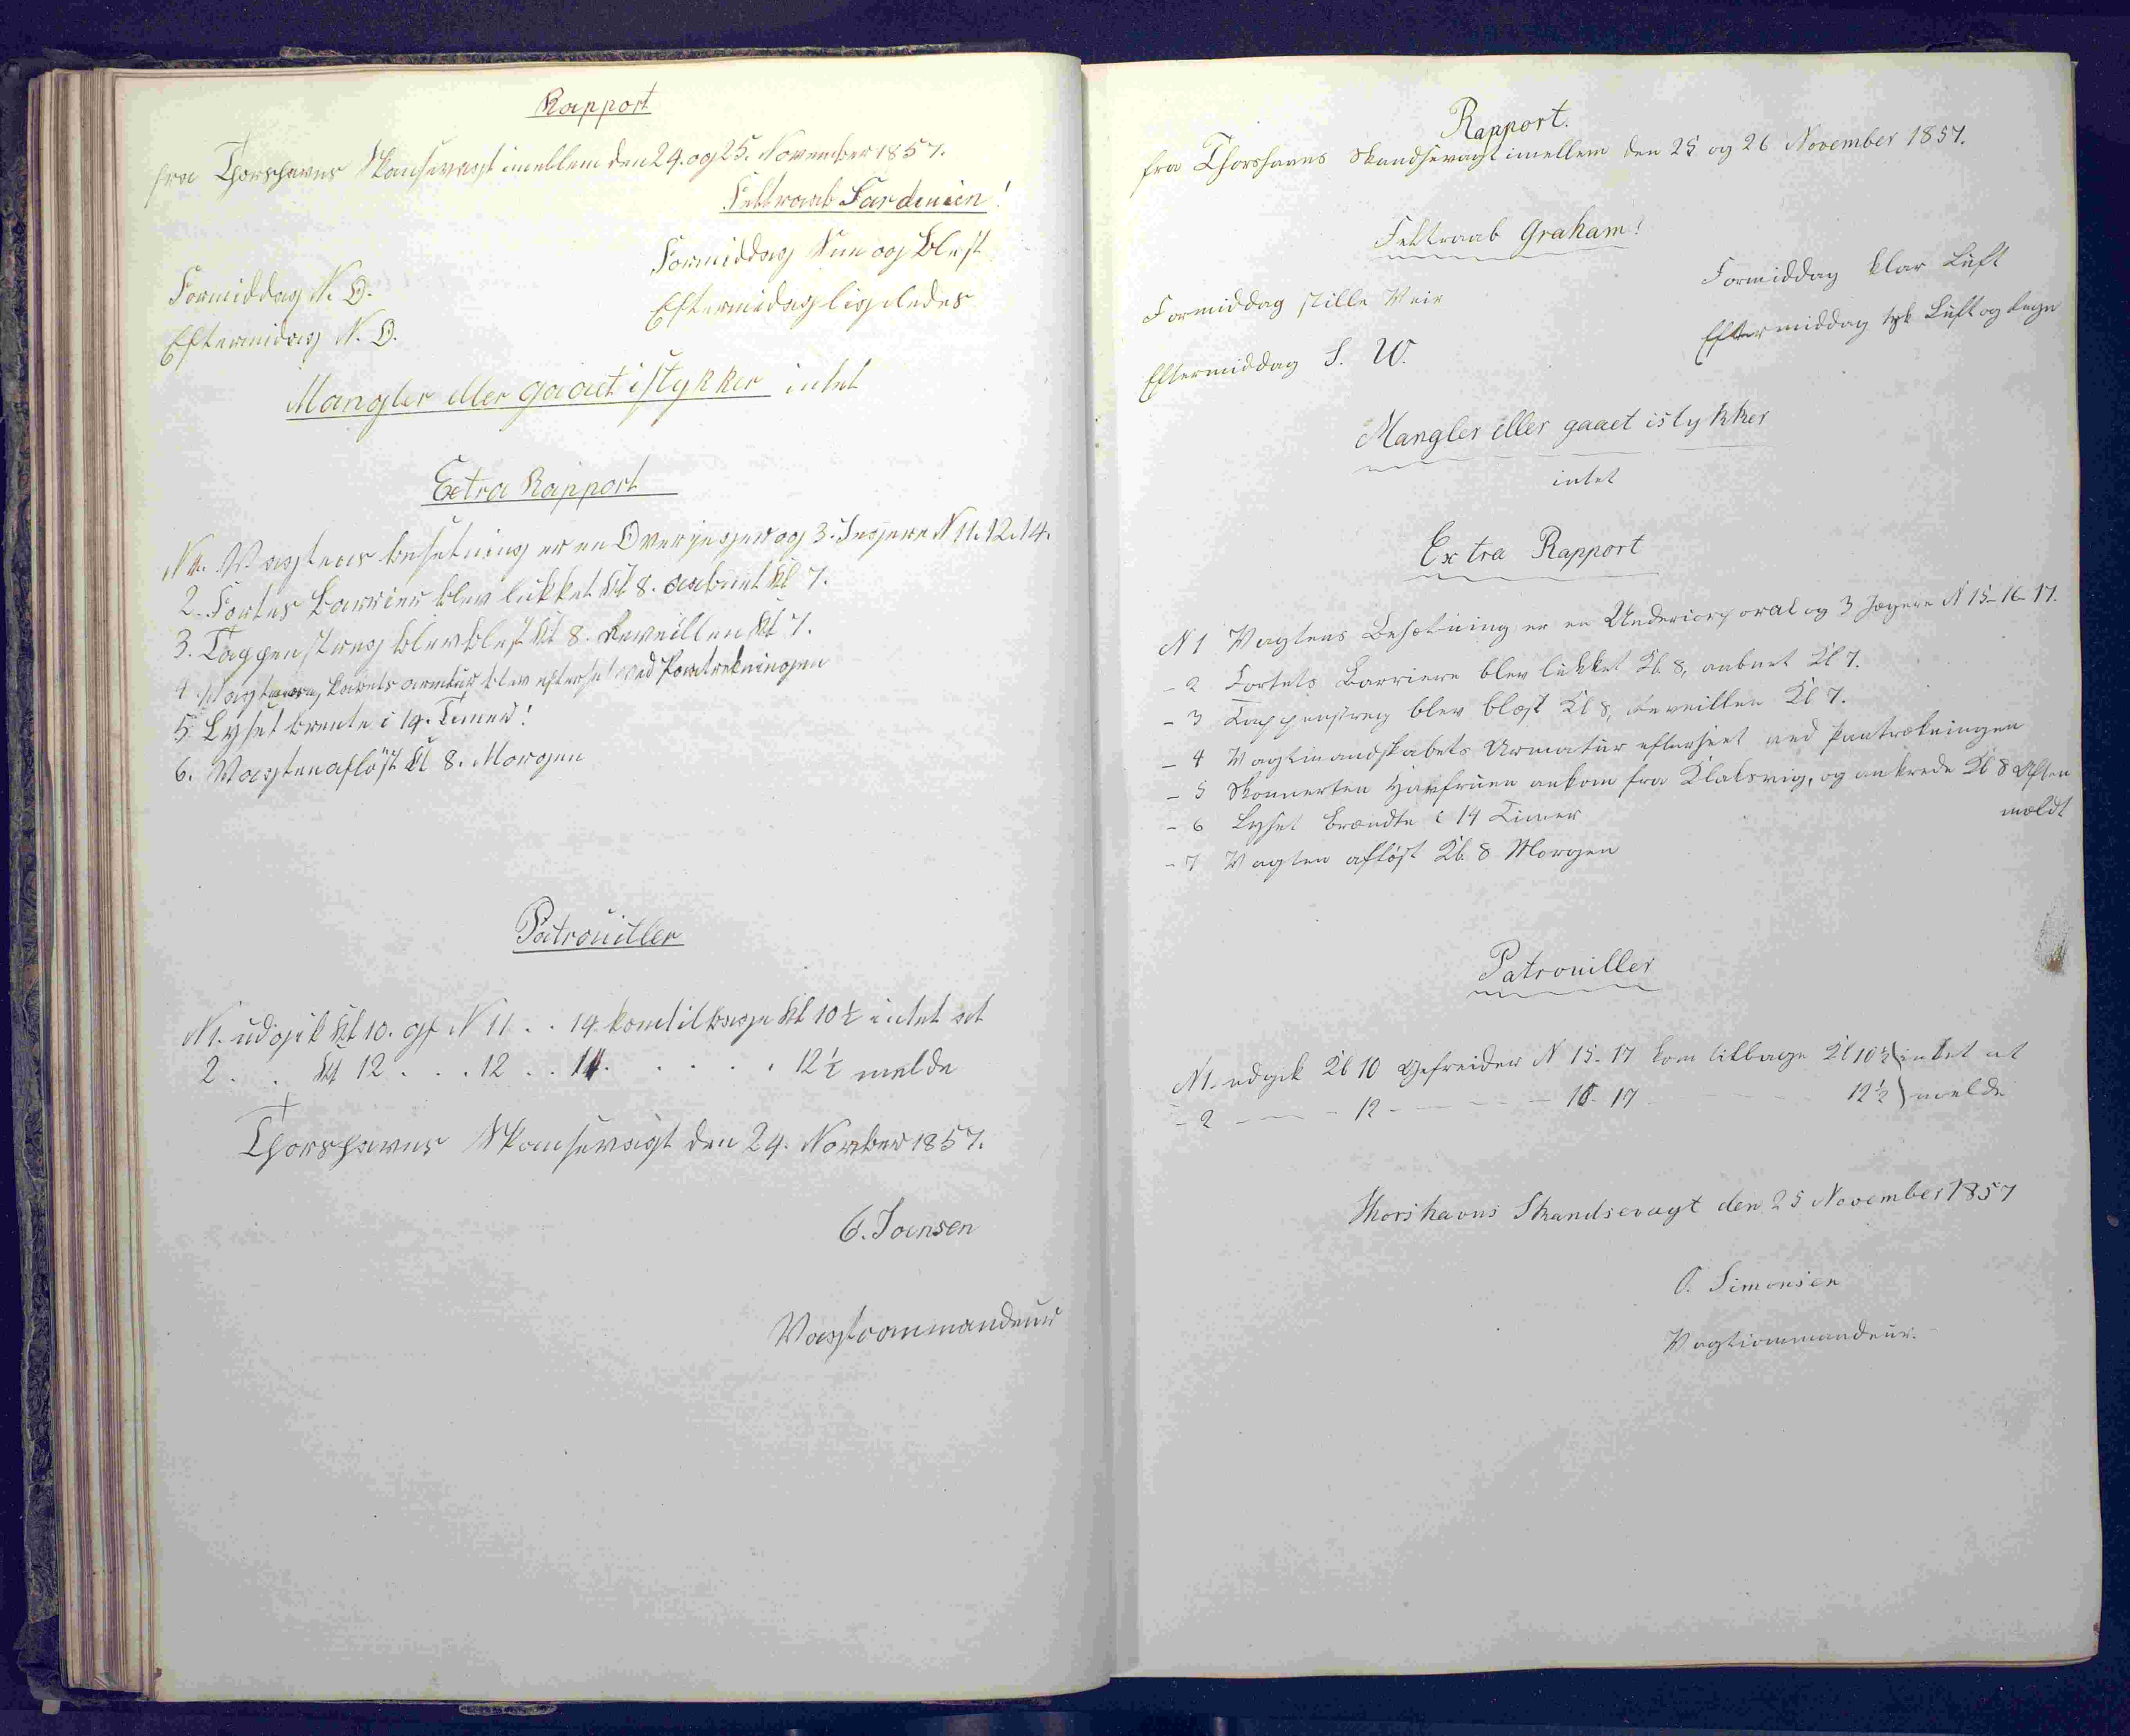 Rapport
fra Thorshavns Skansevagt imellem den 24. og 25. November 1857.
Feltraab Sardinien!
Formiddag N. O.
Formiddag Sne og Blest
Eftermidag N. O.
Eftermidag ligeledes
Mangler eller gaaet istykker intet
Extra Rapport
N 1. Vagtens besetning er en Overjeger og 3. Jegere N 11. 12. 14.
2. Fortes Barrier blev lukket Kl 8. aabnet Kl 7.
3. Tappenstreg blev blest Kl 8. Reveillen Kl 7.
4 armatur blev efterset ved Paatrekningen
5. Lyset brente i 14. Timer!
6. Vagten afløst Kl 8. Morgen
Patrouiller
N 1. udgik Kl 10. gf N 11 . . 14. kom tilbage Kl 10½ intet at
2 . . Kl 12 . . . 12 . . 14. . . . . . 12½ melde
Thorshavns Skansevagt den 24. November 1857.
Joensen
Vagtcommandeur
Rapport.
fra Thorshavns Skandsevagt imellem den 25 og 26 November 1857.
Feltraab Graham!
Formiddag stille Veir
Formiddag klar Luft
Eftermiddag S. W.
Eftermiddag tyk Luft og Regn
Mangler eller gaaet istykker
intet
Extra Rapport
N 1 Vagtens Besætning er en Undercorporal og 3 Jægere N 15-16-17.
- 2 Fortets Barriere blev lukket Kl. 8, aabnet Kl 7.
- 3 Tappenstreg blev blæst Kl 8, Reveillen Kl 7.
- 4 Vagtmandskabets Armatur efterseet ved Paatrækningen
- 5 Skonnerten Havfruen ankom fra Klaksvig, og ankrede Kl 8 Aften
mældt
- 6 Lyset brændte i 14 Timer
- 7 Vagten afløst Kl. 8 Morgen
Patrouiller
N 1. udgik Kl 10 Gefreider N 15-17 kom tilbage Kl 10½ intet at
- 2 - - - 12 - - - - 16-17 12½ melde
Thorshavns Skandsevagt den 25 November 1857
O. Simonsen
Vagtcommandeur.